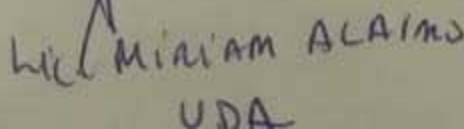 Lic. MIRIAM ALAIMO
UDA